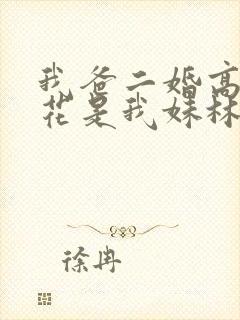 我爸二婚高
花是我妹林
徐冉